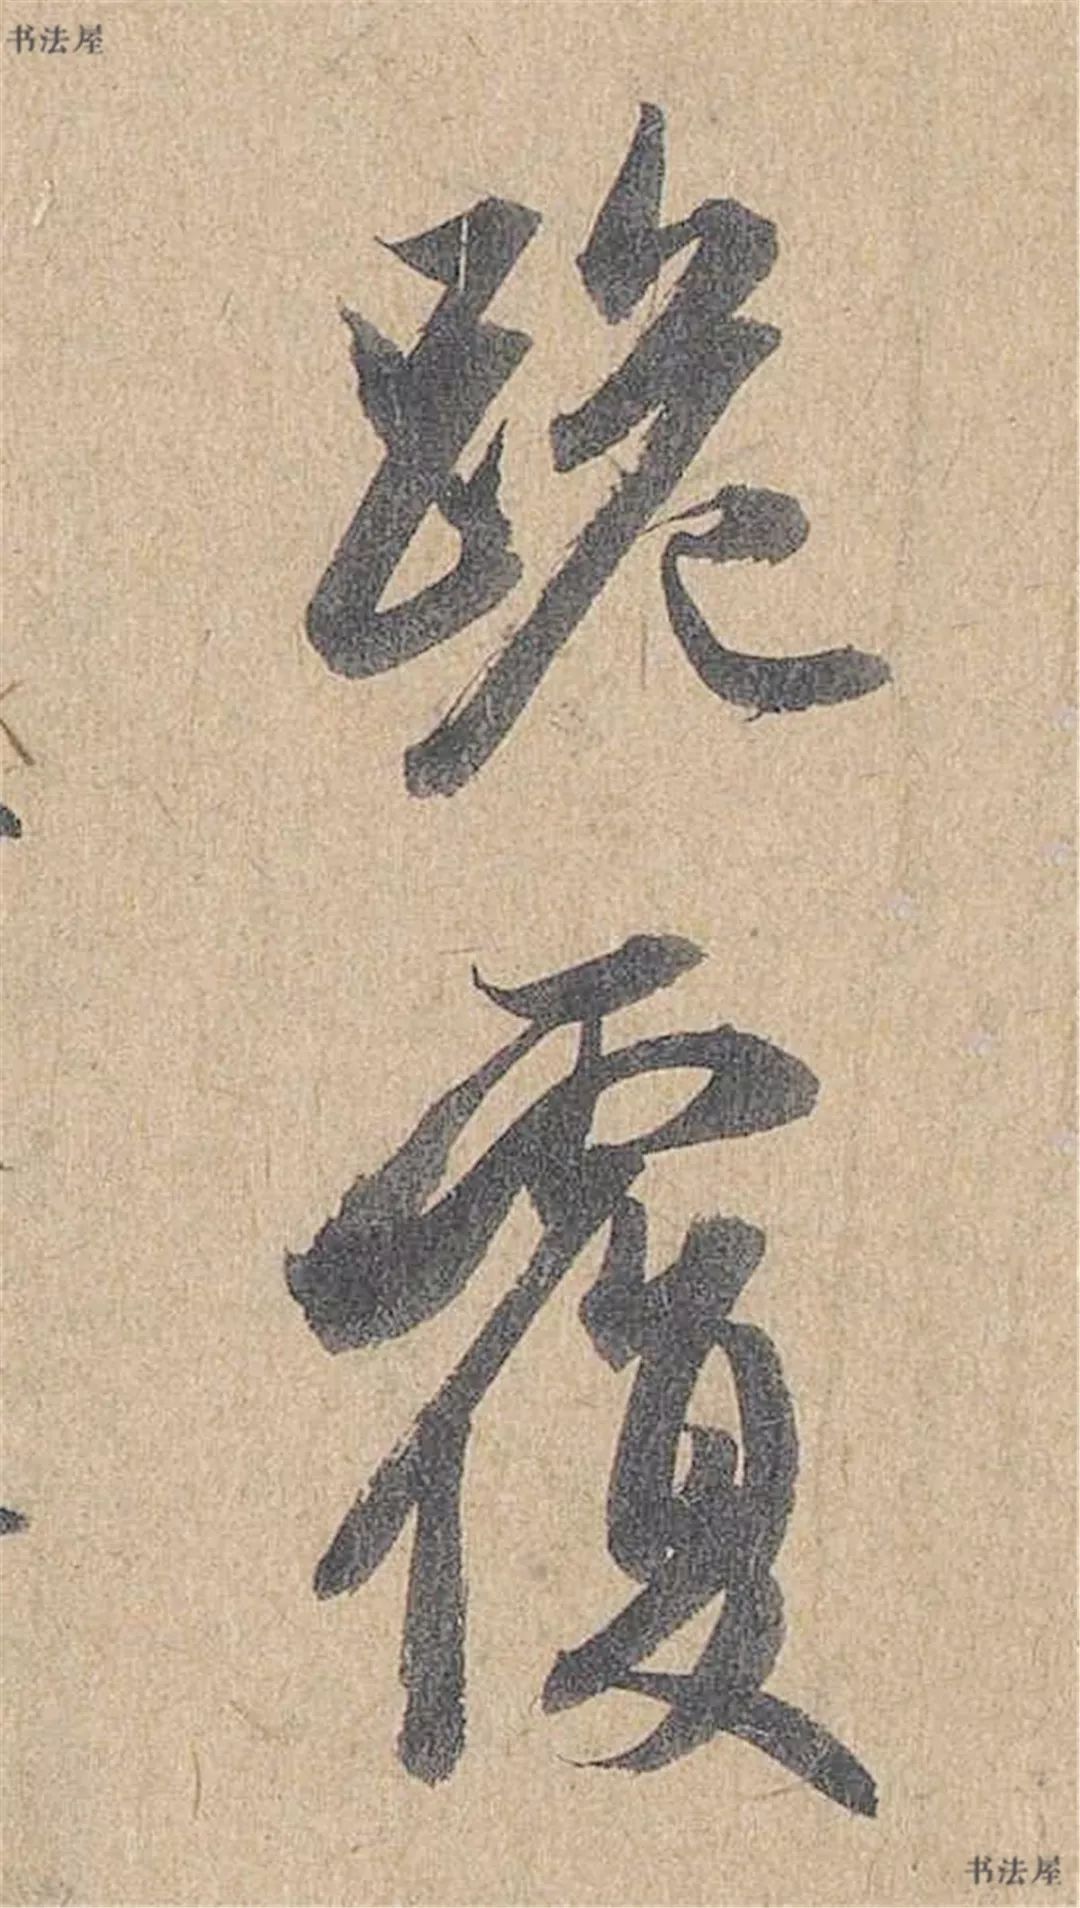 书法屋
跪
覆
书法屋